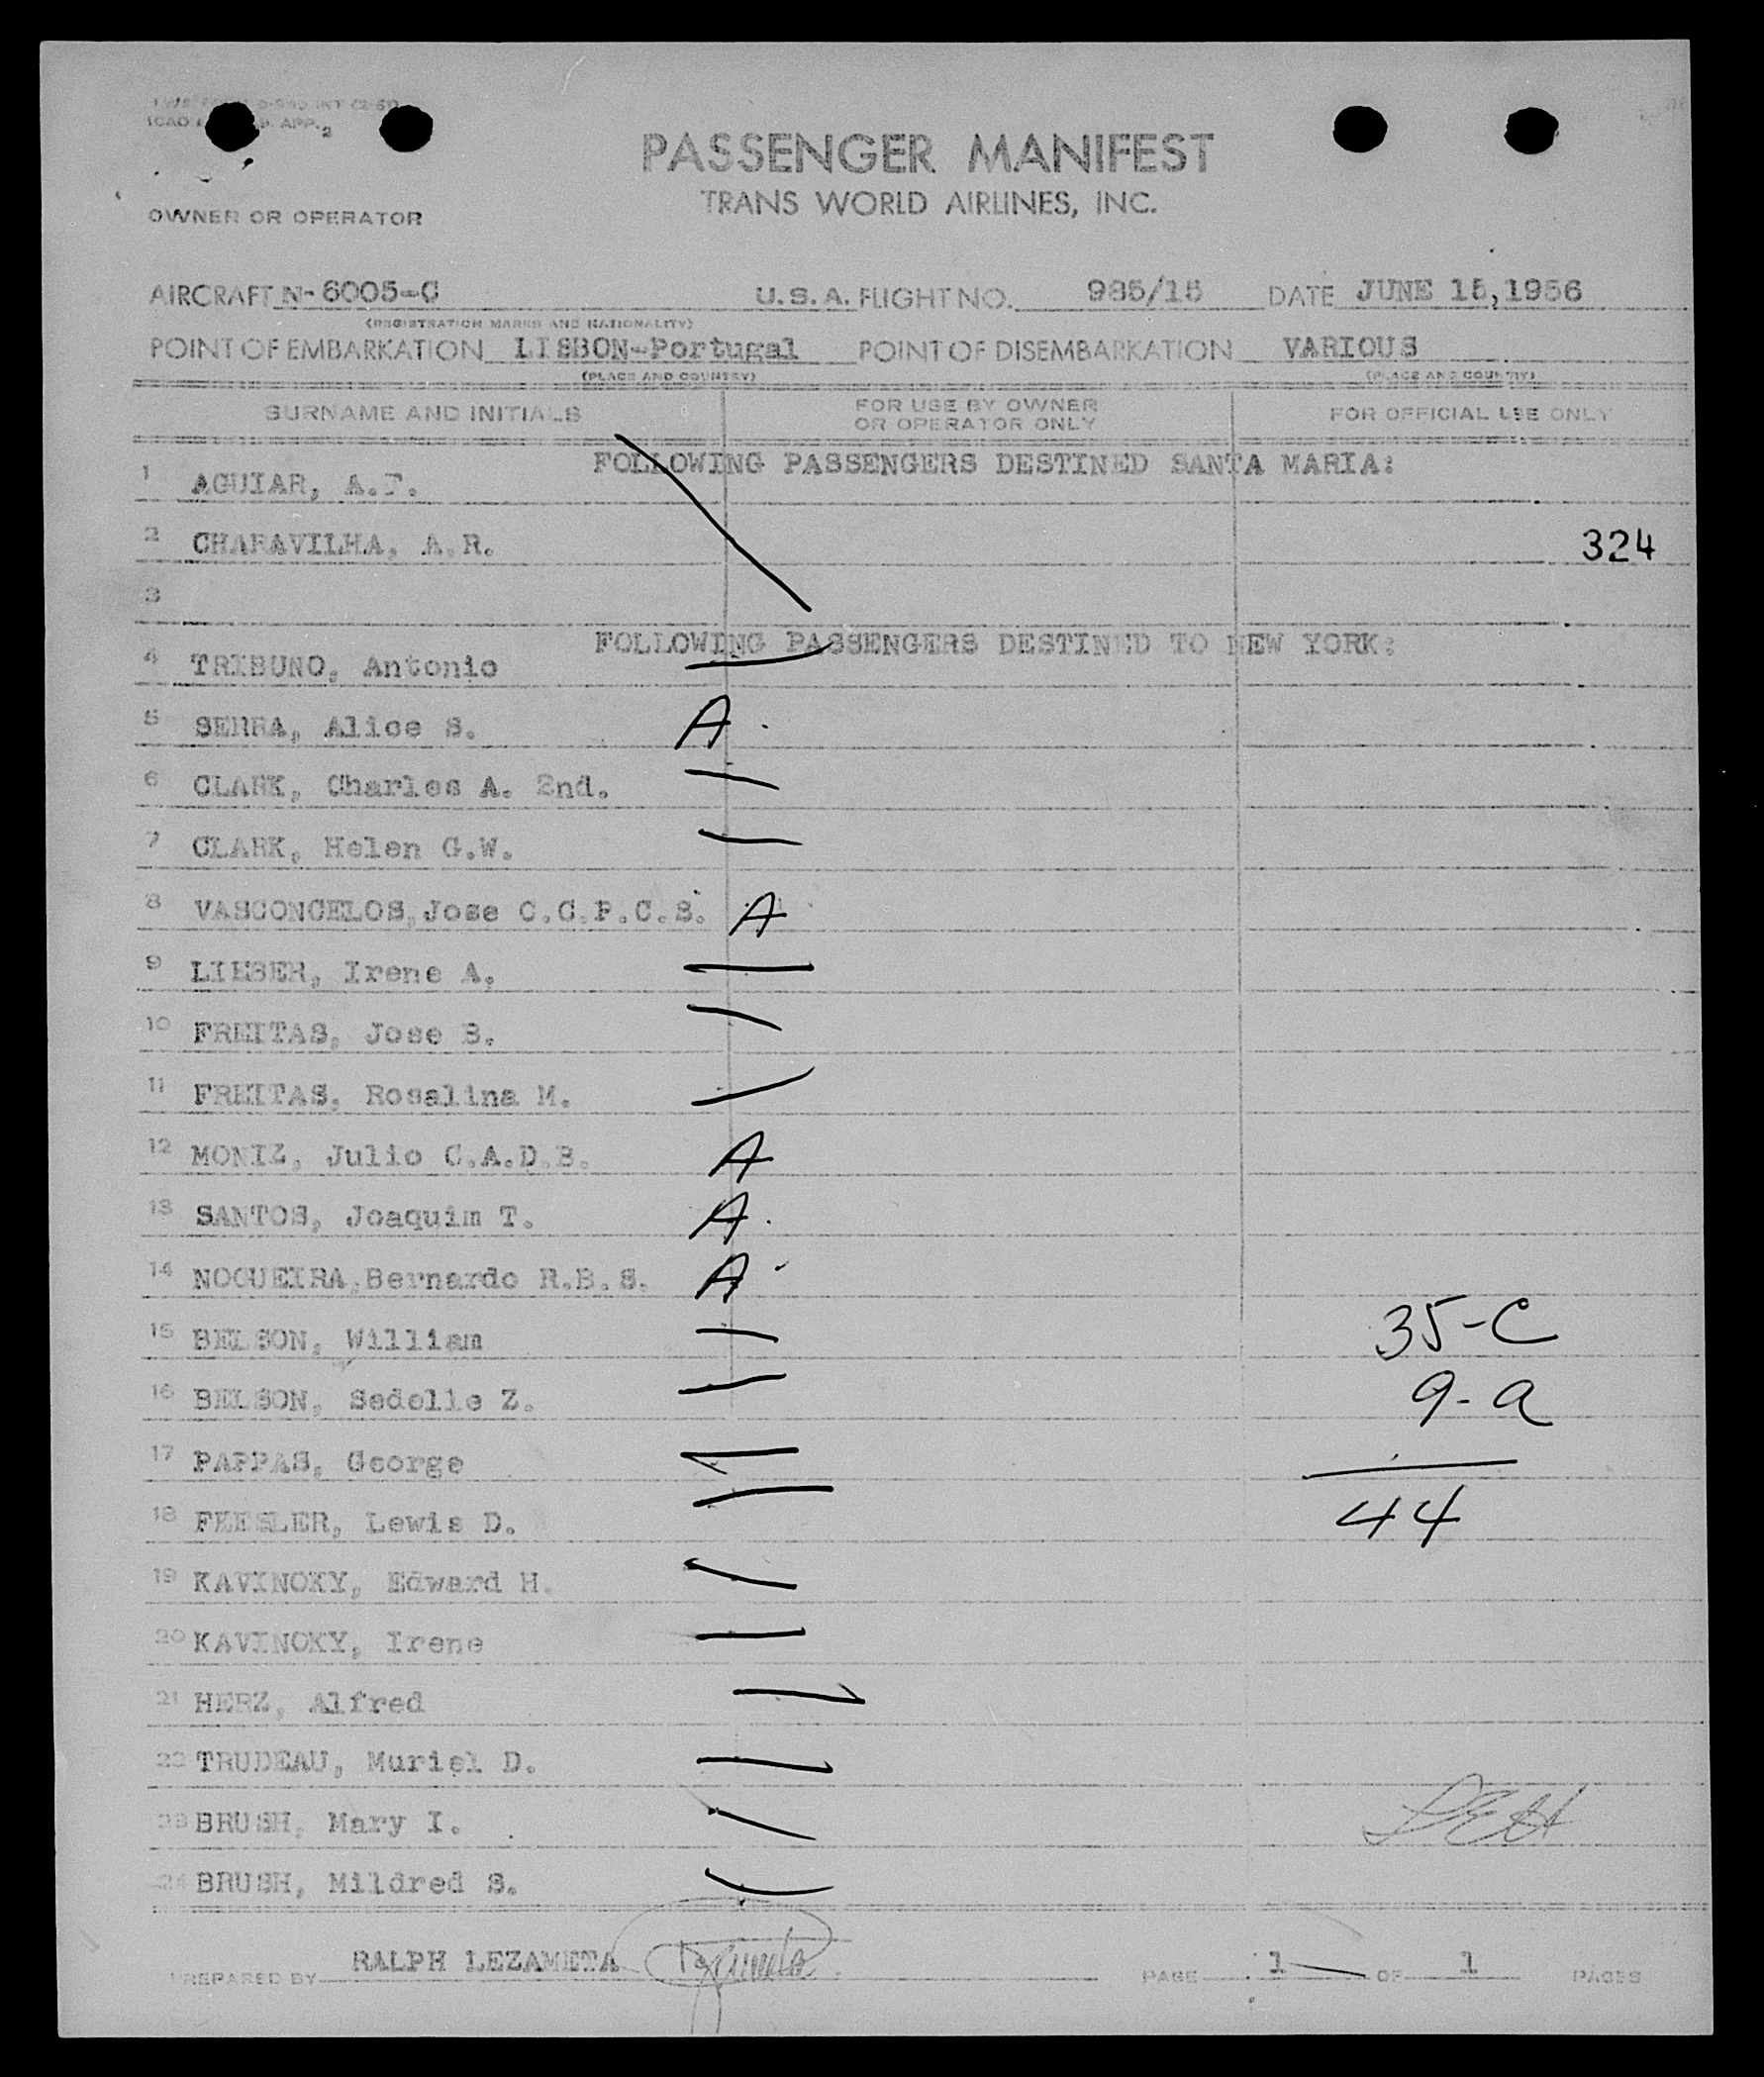 APP. 2
PASSENGER MANIFEST
TRANS WORLD AIRLINES, INC.
OWNER OR OPERATOR
AIRCRAFT N-6005-C U.S.A. FLIGHT NO. 985/15 DATE JUNE 15, 1956
(REGISTRATION MARKS AND NATIONALITY)
POINT OF EMBARKATION LISBON-Portugal POINT OF DISEMBARKATION VARIOUS
(PLACE AND COUNTRY) (PLACE AND COUNTRY)
SURNAME AND INITIALS FOR USE BY OWNER OR OPERATOR ONLY FOR OFFICIAL USE ONLY
FOLLOWING PASSENGERS DESTINED SANTA MARIA:
1 AGUIAR, A.
2 CHARAVILHA, A.R. 324
3
FOLLOWING PASSENGERS DESTINED TO NEW YORK:
4 TRIBUNO, Antonio
5 SERRA, Alice S. A
6 CLARK, Charles A. 2nd.
7 CLARK, Helen G.W.
8 VASCONCELOS, Jose C.C.P.C.S. A
9 LIEBER, Irene A.
10 FREITAS, Jose B.
11 FREITAS, Rosalina M.
12 MONIZ, Julio C.A.D.B. A
13 SANTOS, Joaquim T. A
14 NOGUEIRA, Bernardo R.B.S. A
15 BELSON, William 35-C
16 BELSON, Sedelle Z. 9-a
17 PAPPAS, George
18 FEESLER, Lewis D. 44
19 KAVINOKY, Edward H.
20 KAVINOKY, Irene
21 HERZ, Alfred
22 TRUDEAU, Muriel D.
23 BRUSH, Mary I.
24 BRUSH, Mildred S.
PREPARED BY RALPH LEZAMETA PAGE 1 OF 1 PAGES